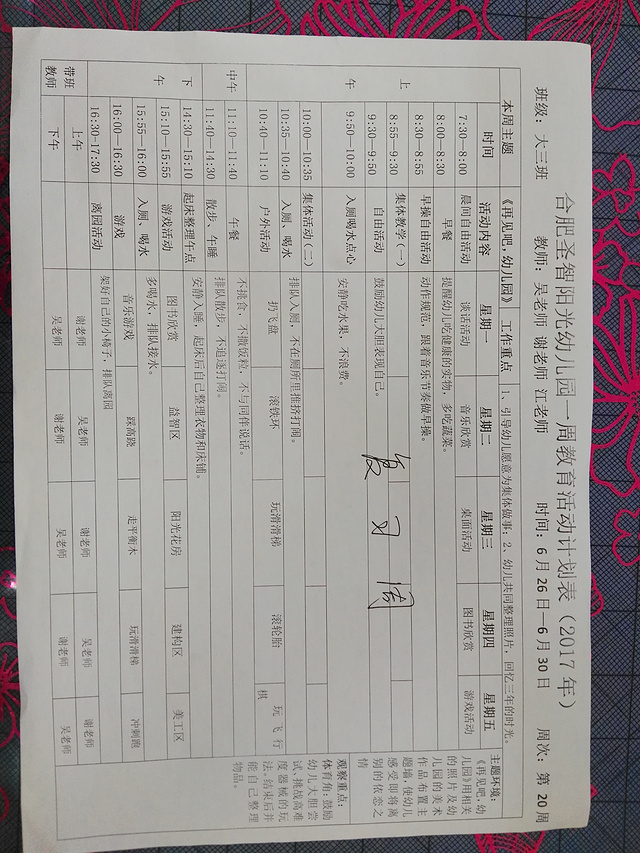 合肥圣智阳光幼儿园一周教育活动计划表（2017 年）
班级： 大三班 教师： 吴老师 谢老师 江老师 时间： 6 月 26 日—6 月 30 日 周次： 第 20 周
本周主题 《再见吧，幼儿园》 工作重点 1、引导幼儿愿意为集体做事；2、幼儿共同整理照片，回忆三年的时光。
时间 活动内容 星期一 星期二 星期三 星期四 星期五
上午
7:30-8:00 晨间自由活动 谈话活动 音乐欣赏 桌面活动 图书欣赏 游戏活动
8:00-8:30 早餐 提醒幼儿吃健康的食物，多吃蔬菜。
8:30-8:55 早操自由活动 动作规范，跟着音乐节奏做早操。
8:55-9:30 集体教学（一）
9:30-9:50 自由活动 鼓励幼儿大胆表现自己。
复习周
9:50—10:00 入厕喝水点心 安静吃水果，不浪费。
10:00—10:35 集体活动（二）
10:35—10:40 入厕、喝水 排队入厕，不在厕所里推挤打闹。
10:40—11:10 户外活动 扔飞盘 滚铁环 玩滑滑梯 滚轮胎 玩飞行棋
中午
11:10—11:40 午餐 不挑食，不撒饭粒，不与同伴说话。
11:40—14:30 散步、午睡 排队散步，不追逐打闹。
安静入睡，起床后自己整理衣物和床铺。
下午
14:30—15:10 起床整理午点
15:10—15:55 游戏活动 图书欣赏 益智区 阳光花房 建构区 美工区
15:55—16:00 入厕、喝水 多喝水，排队接水。
16:00—16:30 游戏 音乐游戏 踩高跷 走平衡木 玩滑滑梯 冲刺跑
16:30-17:30 离园活动 架好自己的小椅子，排队离园
带班教师
上午 谢老师 吴老师 谢老师 吴老师 谢老师
下午 吴老师 谢老师 吴老师 谢老师 吴老师
主题环境：
《再见吧，幼
儿园》用相关
的照片及幼
儿园的美术
作品布置主
题墙，使幼儿
感受即将离
别的依恋之
情
观察重点：
体育角：鼓励
幼儿大胆尝
试，挑战高难
度器械的玩
法。结束后并
能自己整理
物品。